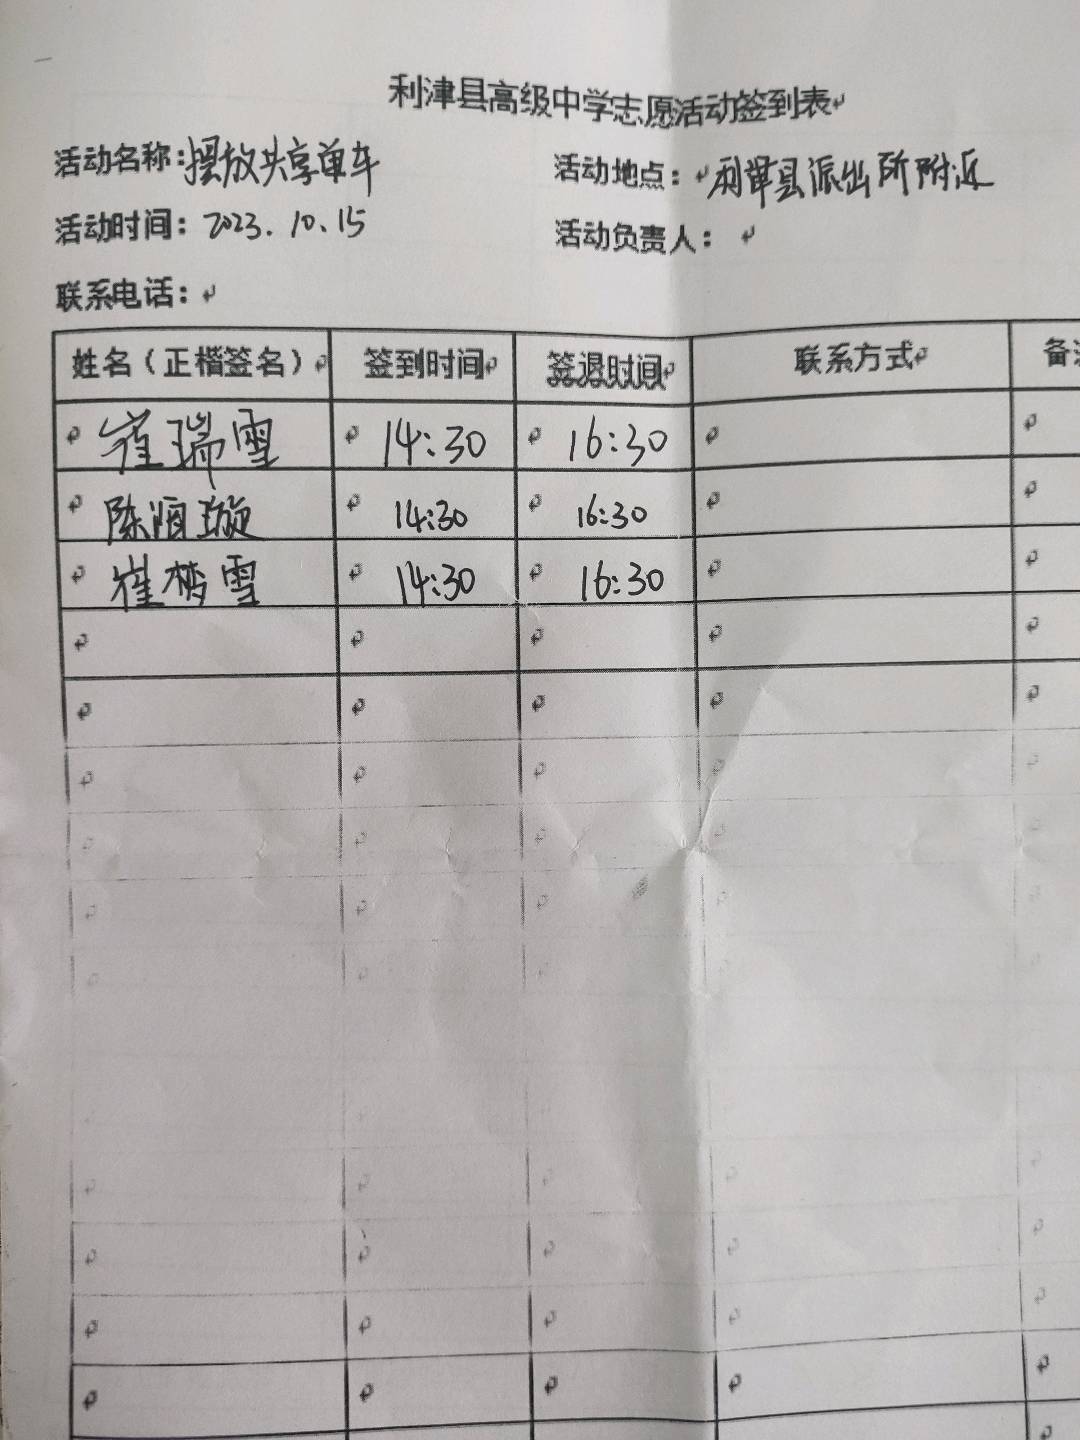 利津县高级中学志愿活动签到表
活动名称：摆放共享单车 活动地点：利津县派出所附近
活动时间：2023.10.15 活动负责人：
联系电话：
姓名（正楷签名） 签到时间 签退时间 联系方式 备注
崔瑞雪 14:30 16:30
陈顺璇 14:30 16:30
崔梦雪 14:30 16:30